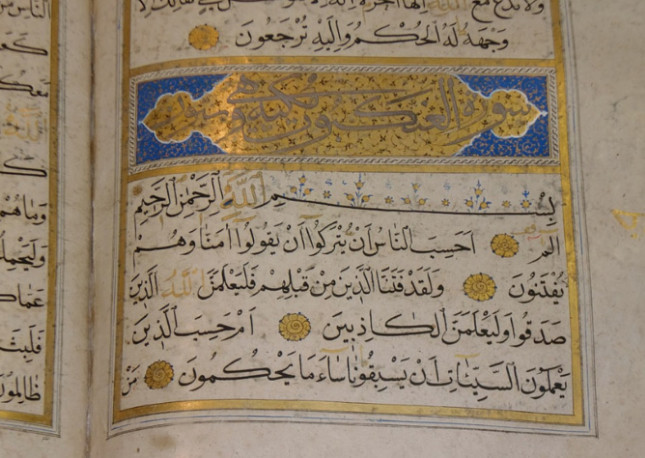 ولا تدع مع الله الها اخر لا
وجهه له الحكم واليه ترجعون
سورة العنكبوت
بسم الله الرحمن الرحيم
الم احسب الناس ان يتركوا ان يقولوا امنا وهم
يفتنون ولقد فتنا الذين من قبلهم فليعلمن الله الذين
صدقوا وليعلمن الكاذبين ام حسب الذين
يعملون السيئات ان يسبقونا ساء ما يحكمون من
الناس
معكم
وما هم
عما كا
ظالمون